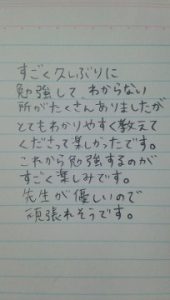 すごく久しぶりに
勉強して、わからない
所がたくさんありましたが
とてもわかりやすく教えて
くださって楽しかったです。
これから勉強するのが
すごく楽しみです。
先生が優しいので
頑張れそうです。